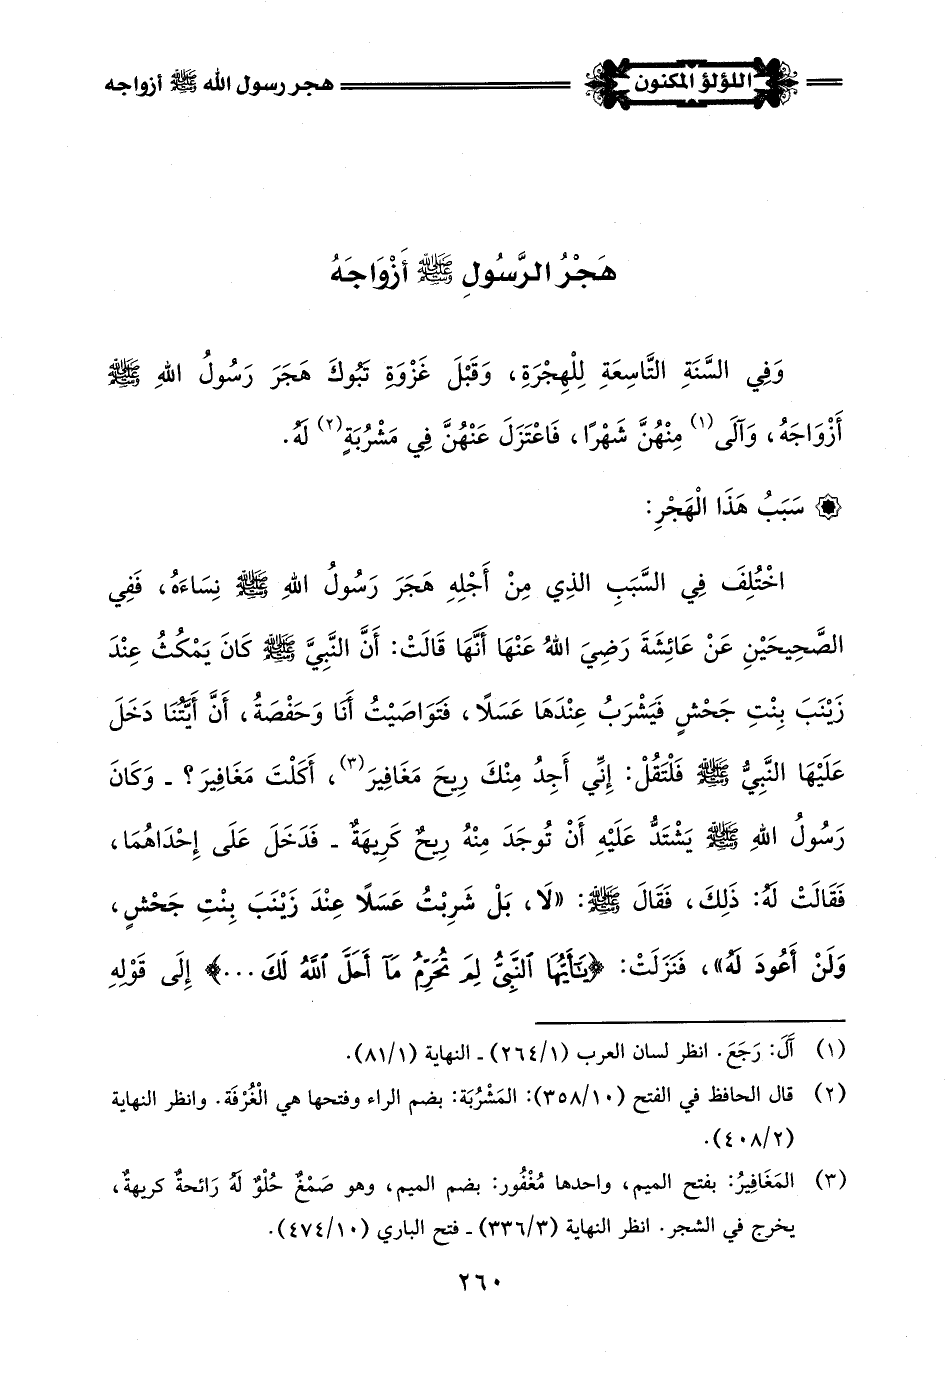 اللؤلؤ المكنون هجر رسول الله ﷺ أزواجه
هَجْرُ الرَّسُولِ ﷺ أَزْوَاجَهُ
وَفِي السَّنَةِ التَّاسِعَةِ لِلْهِجْرَةِ، وَقَبْلَ غَزْوَةِ تَبُوكَ هَجَرَ رَسُولُ اللهِ ﷺ
أَزْوَاجَهُ، وَآلَى(١) مِنْهُنَّ شَهْرًا، فَاعْتَزَلَ عَنْهُنَّ فِي مَشْرُبَةٍ(٢) لَهُ.
۞ سَبَبُ هَذَا الْهَجْرِ:
اخْتُلِفَ فِي السَّبَبِ الذِي مِنْ أَجْلِهِ هَجَرَ رَسُولُ اللهِ ﷺ نِسَاءَهُ، فَفِي
الصَّحِيحَيْنِ عَنْ عَائِشَةَ رَضِيَ اللهُ عَنْهَا أَنَّهَا قَالَتْ: أَنَّ النَّبِيَّ ﷺ كَانَ يَمْكُثُ عِنْدَ
زَيْنَبَ بِنْتِ جَحْشٍ فَيَشْرَبُ عِنْدَهَا عَسَلًا، فَتَوَاصَيْتُ أَنَا وَحَفْصَةُ، أَنَّ أَيَّتُنَا دَخَلَ
عَلَيْهَا النَّبِيُّ ﷺ فَلْتَقُلْ: إِنِّي أَجِدُ مِنْكَ رِيحَ مَغَافِيرَ(٣)، أَكَلْتَ مَغَافِيرَ؟ ـ وَكَانَ
رَسُولُ اللهِ ﷺ يَشْتَدُّ عَلَيْهِ أَنْ تُوجَدَ مِنْهُ رِيحٌ كَرِيهَةٌ ـ فَدَخَلَ عَلَى إِحْدَاهُمَا،
فَقَالَتْ لَهُ: ذَلِكَ، فَقَالَ ﷺ: «لَا، بَلْ شَرِبْتُ عَسَلًا عِنْدَ زَيْنَبَ بِنْتِ جَحْشٍ،
وَلَنْ أَعُودَ لَهُ»، فَنَزَلَتْ: ﴿يَـٰٓأَيُّهَا ٱلنَّبِىُّ لِمَ تُحَرِّمُ مَآ أَحَلَّ ٱللَّهُ لَكَ...﴾ إِلَى قَوْلِهِ
(١) آلَ: رَجَعَ. انظر لسان العرب (٢٦٤/١) ـ النهاية (٨١/١).
(٢) قال الحافظ في الفتح (٣٥٨/١٠): المَشْرُبَة: بضم الراء وفتحها هي الْغُرْفَة. وانظر النهاية
(٤٠٨/٢).
(٣) المَغَافِيرُ: بفتح الميم، واحدها مُغْفُور: بضم الميم، وهو صَمْغٌ حُلْوٌ لَهُ رَائحةٌ كريهةٌ،
يخرج في الشجر. انظر النهاية (٣٣٦/٣) ـ فتح الباري (٤٧٤/١٠).
٢٦٠